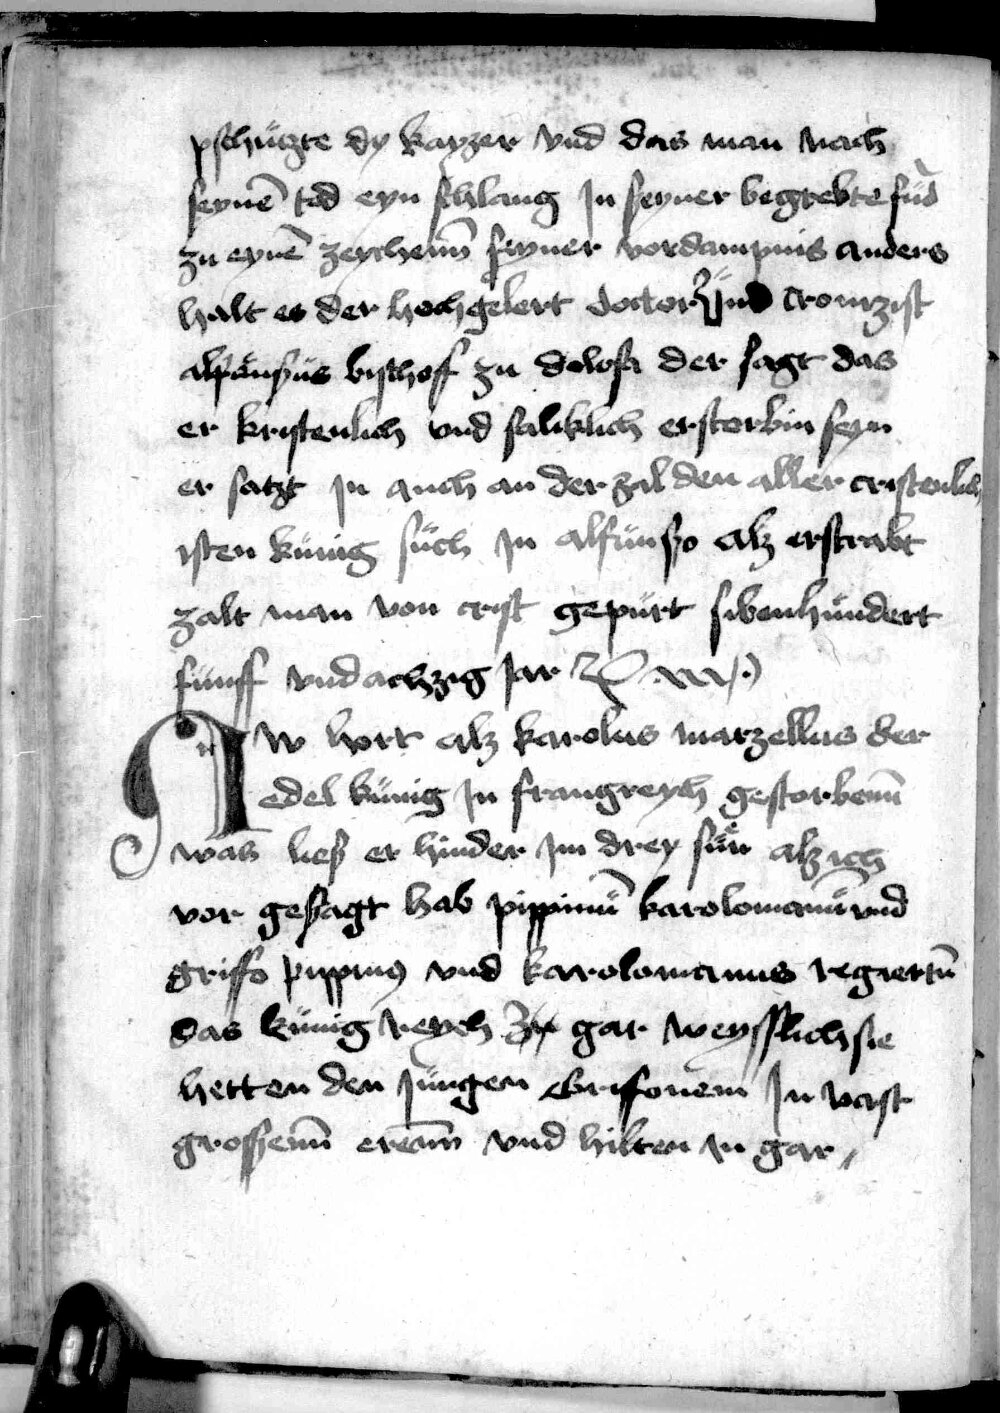 pschüczte dy kayzer vnd das man nach
seynē tod eyn schlang In seyner begrebte fūd
zu eynē zeychenn̄ seyner vordampnis anders
halt es der hochgelert doctor vnd cronizist
alfünsüs bischoff zu dolosa der sagt das
er kristenlich vnd saliklich erstorbin seyn
er satzt In auch an der zal den aller cristenlich
isten künig süch In alfünso alz erstrabt
zalt man von crist gepürt sibenhündert
fünff vnd achzig Jar
Nw hort alz karolus marzellus der
edel künig In frangreych gestorbenn̄
was ließ er hinder Im drey sün alz ich
vor gesagt hab pippinū karolomanū vnd
griffo pippinus vnd karolomanus regiertn̄
das künig reych gar weysslich sie
hetten den Jüngen Griffonem In vast
grossenn̄ erenn vnd hilten In gar